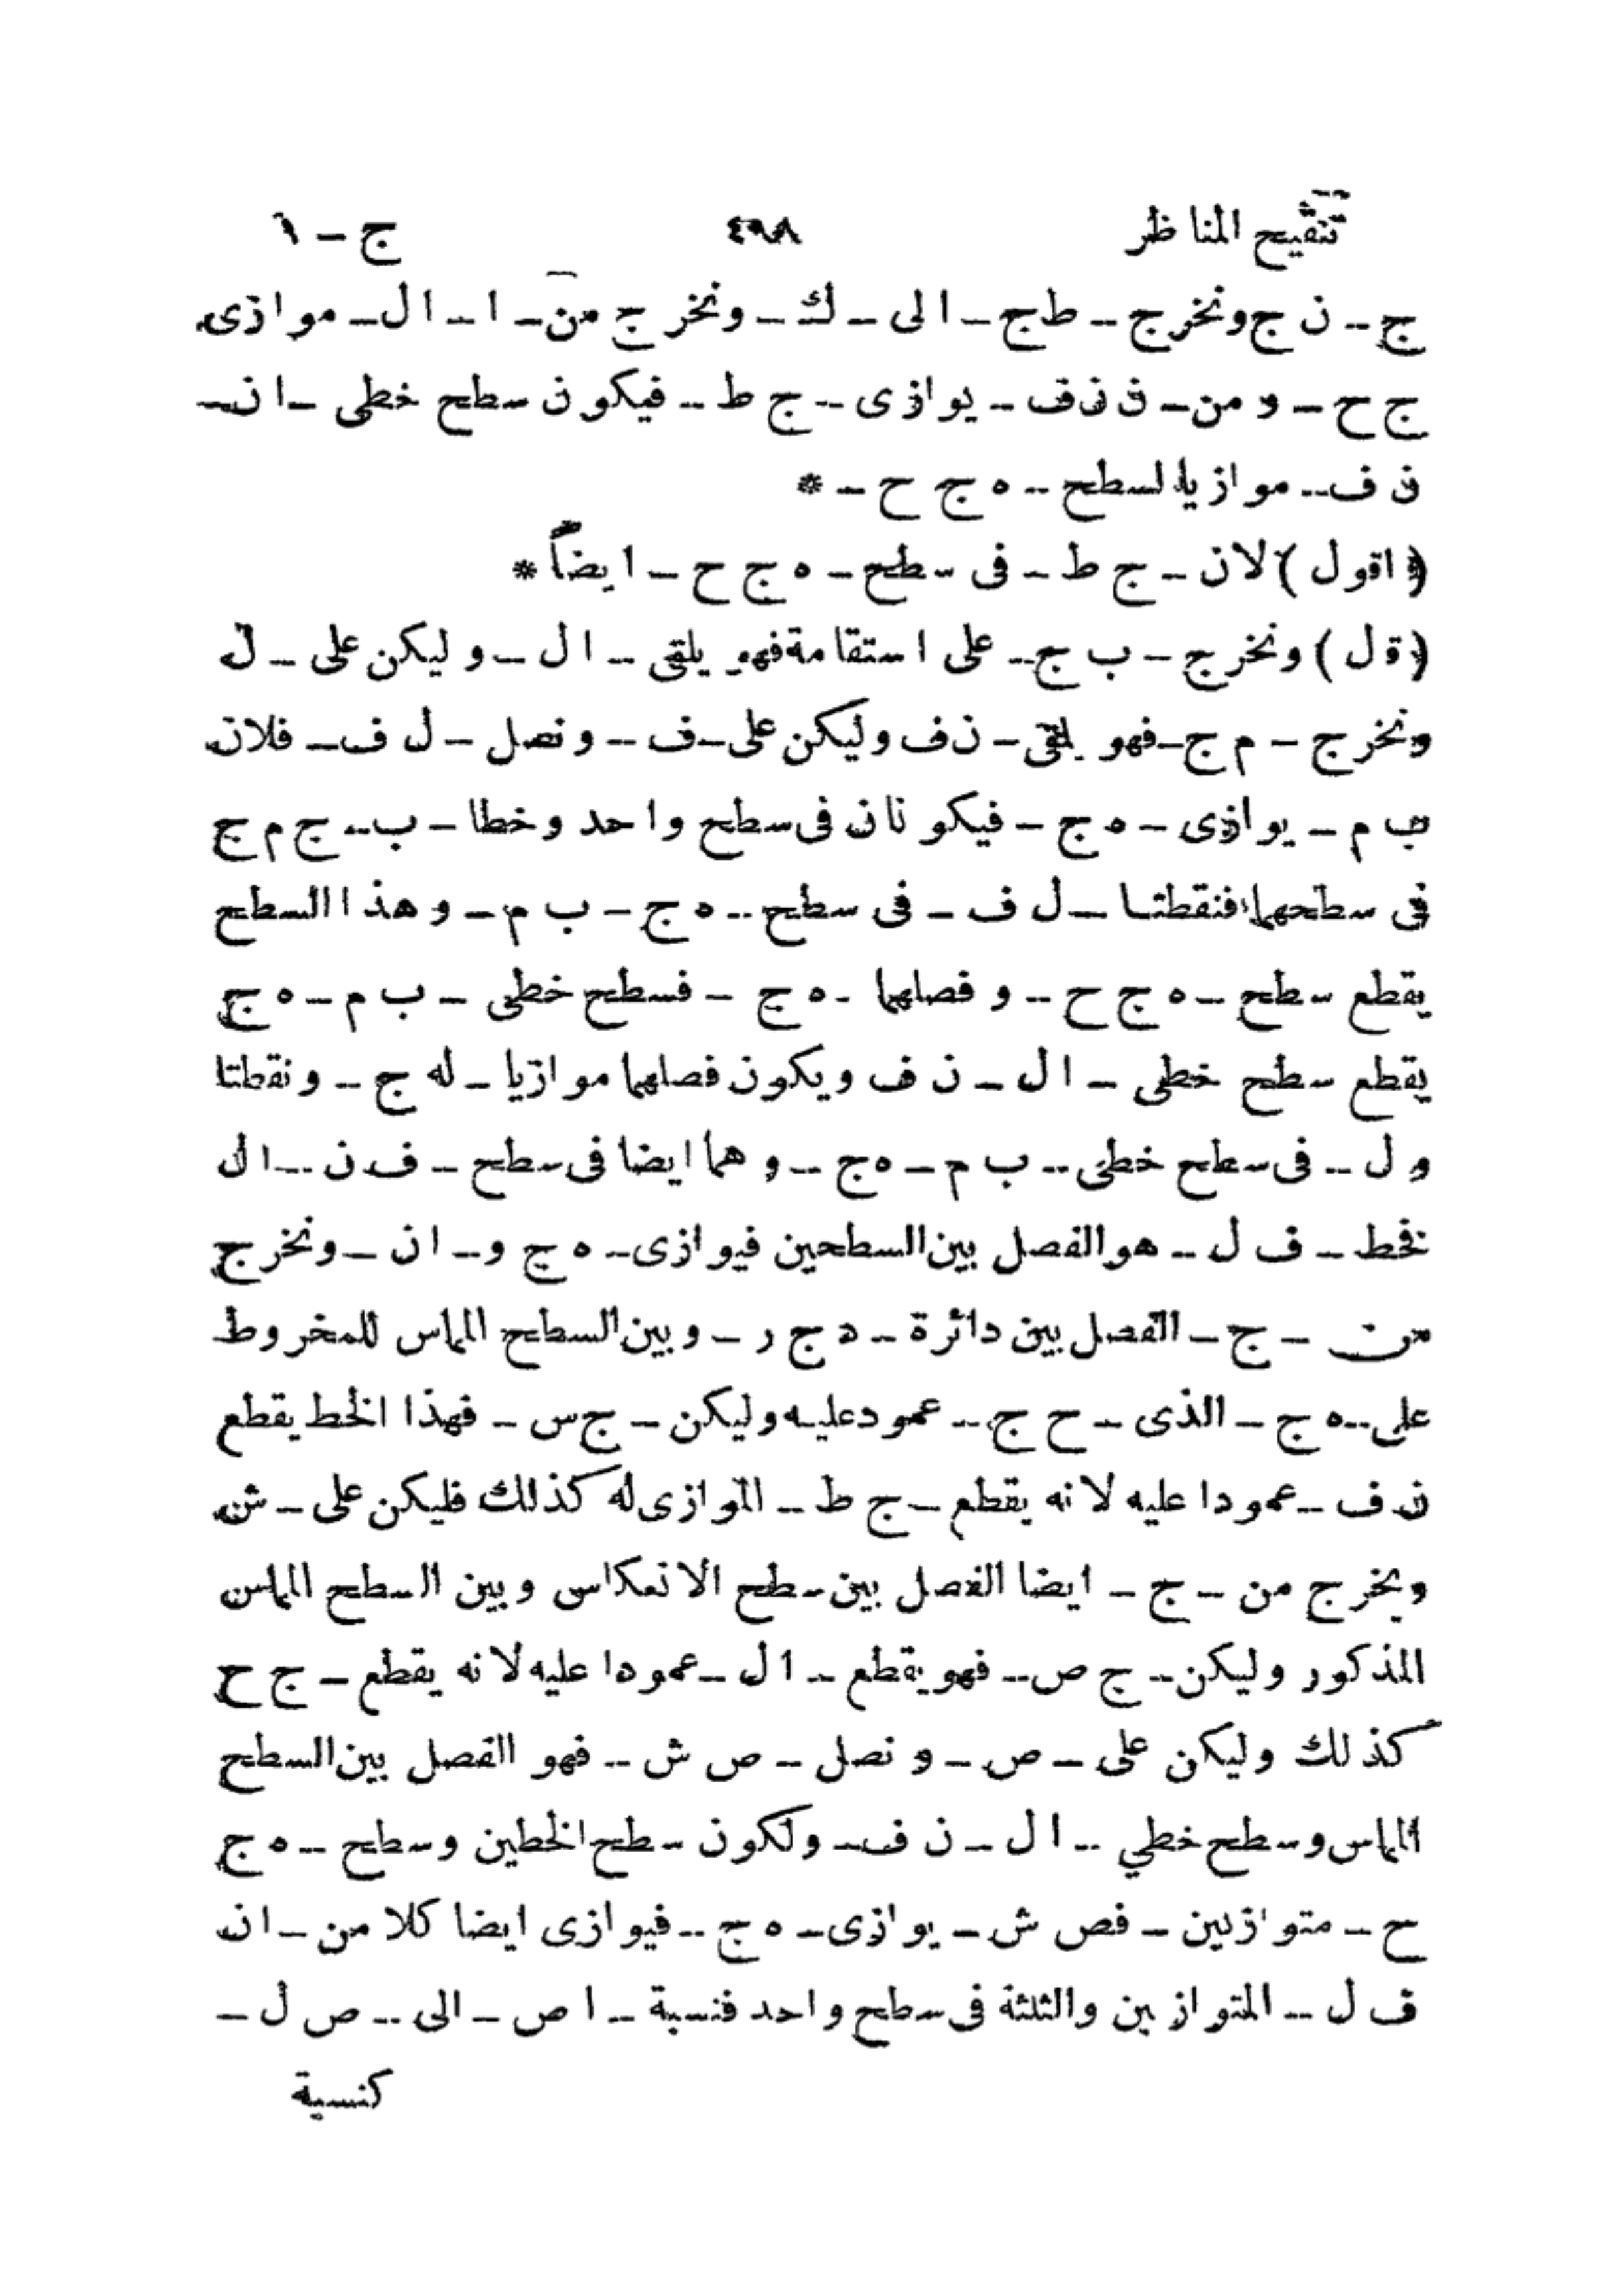 تنقيح المناظر ٤٩٨ ج – ١
ج – ن ج ونخرج – ط ج – الى – ك – ونخرج من – ا – ال – موازى
ج ح – و من – ن ن ف – يوازى – ج ط – فيكون سطح خطى – ا ن –
ن ف – موازيا لسطح – ه ج ح – *
(اقول) لان – ج ط – فى سطح – ه ج ح – ايضاً *
(قال) ونخرج – ب ج – على استقامة فهو يلقى – ال – وليكن على – ل
ونخرج – م ج – فهو يلقى – ن ف وليكن على – ف – ونصل – ل ف – فلان
ب م – يوازى – ه ج – فيكونان فى سطح واحد وخطا – ب – ج م ج
فى سطحهما فنقطتا – ل ف – فى سطح – ه ج – ب م – وهذا السطح
يقطع سطح – ه ج ح – وفصلهما – ه ج – فسطح خطى – ب م – ه ج
يقطع سطح خطى – ال – ن ف ويكون فصلهما موازيا – له ج – ونقطتا
و ل – فى سطح خطى – ب م – ه ج – وهما ايضا فى سطح – ف ن – ال
فخط – ف ل – هو الفصل بين السطحين فيوازى – ه ج و – ا ن – ونخرج
من – ج – الفصل بين دائرة – د ج ر – وبين السطح المماس للمخروط
على – ه ج – الذى – ح ج – عمود عليه وليكن – ج س – فهذا الخط يقطع
ن ف – عمودا عليه لانه يقطع – ج ط – الموازى له كذلك فليكن على – ش
ويخرج من – ج – ايضا الفصل بين سطح الانعكاس وبين السطح المماس
المذكور وليكن – ج ص – فهو يقطع – ال – عمودا عليه لانه يقطع – ج ح
كذلك وليكن على – ص – و نصل – ص ش – فهو الفصل بين السطح
المماس وسطح خطي – ال – ن ف – ولكون سطح الخطين وسطح – ه ج
ح – متوازيين – فص ش – يوازى – ه ج – فيوازى ايضا كلا من – ا ن
ف ل – المتوازيين والثلثة فى سطح واحد فنسبة – ا ص – الى – ص ل –
كنسبة